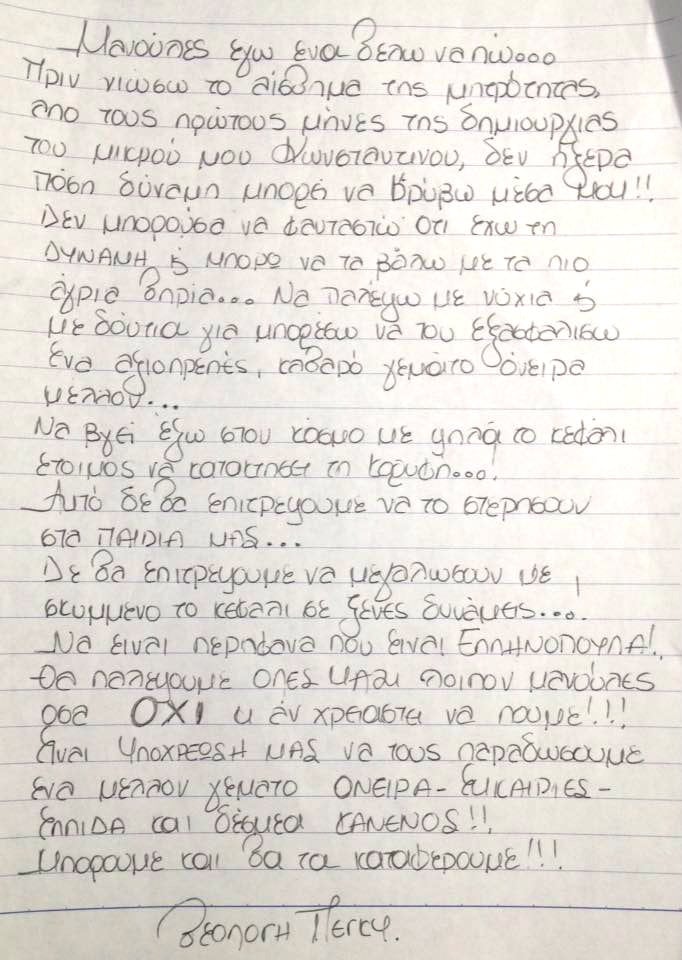 Μανούλες εγω ενα θελω να πω...
Πριν νιωσω το αίσθημα της μητρότητας,
απο τους πρώτους μήνες της δημιουργιας
του μικρού μου Κωνσταντινου, δεν ηξερα
πόση δύναμη μπορεί να κρύβω μέσα μου!!
Δεν μπορούσα να φανταστώ οτι εχω τη
ΔΥΝΑΜΗ & μπορω να τα βάλω με τα πιο
άγρια θηρία... Να παλέψω με νύχια &
με δόντια για μπορέσω να του εξασφαλισω
ένα αξιοπρεπές, καθαρό γεμάτο όνειρα
μελλον...
Να βγει έξω στον κόσμο με ψηλά το κεφάλι
έτοιμος να κατακτησει τη κορυφη...!
Αυτό δε θα επιτρεψουμε να το στερησουν
στα ΠΑΙΔΙΑ ΜΑΣ...
Δε θα επιτρεψουμε να μεγαλωσουν με
σκυμμενο το κεφαλι σε ξένες δυνάμεις....
Να ειναι περηφανα που ειναι ΕΛΛΗΝΟΠΟΥΛΑ!..
Θα παλεψουμε ΟΛΕΣ ΜΑΖΙ λοιπον μανούλες
οσα ΟΧΙ κι άν χρειαστει να πουμε!!!
Ειναι ΥΠΟΧΡΕΩΣΗ ΜΑΣ να τους παραδωσουμε
ενα μελλον γεματο ΟΝΕΙΡΑ - ΕΥΚΑΙΡΙΕΣ -
ΕΛΠΙΔΑ και δέσμεα ΚΑΝΕΝΟΣ!!.
Μπορουμε και θα τα καταφερουμε!!!
Θεολογη